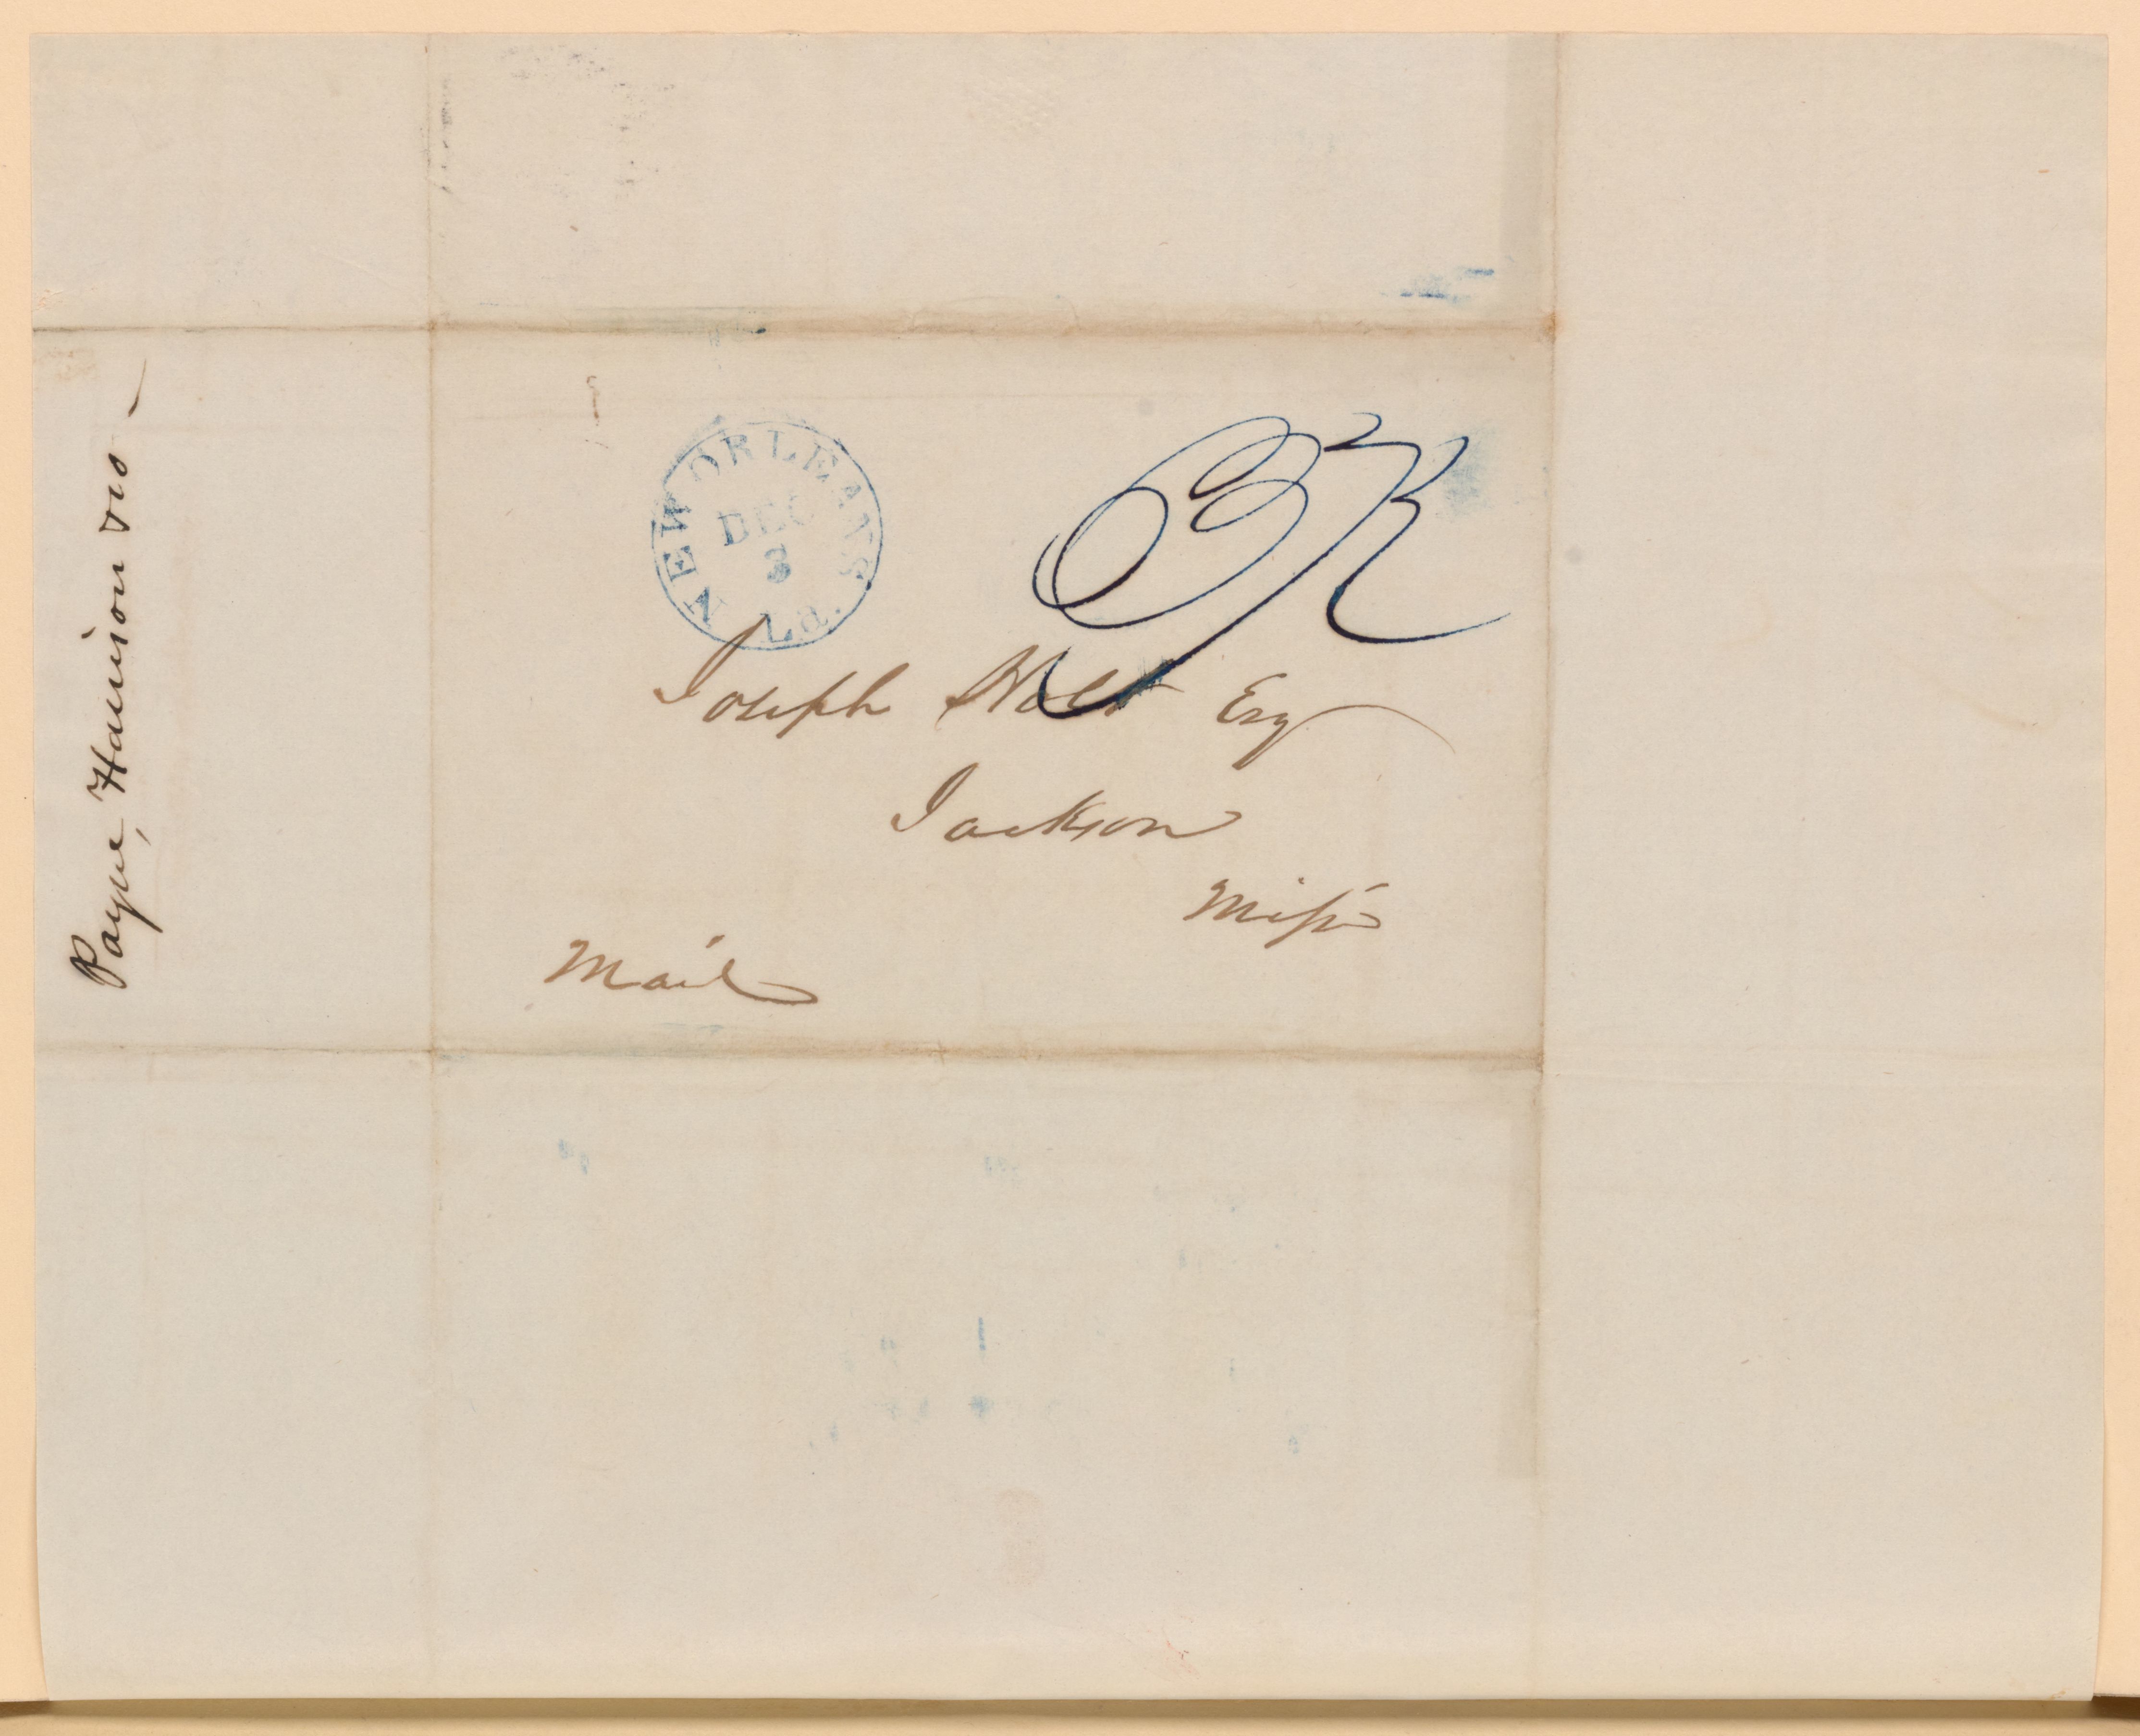 NEW ORLEANS La.
DEC
3
Joseph Holt Esq
Jackson
Miss
Mail
Payne, Harrison